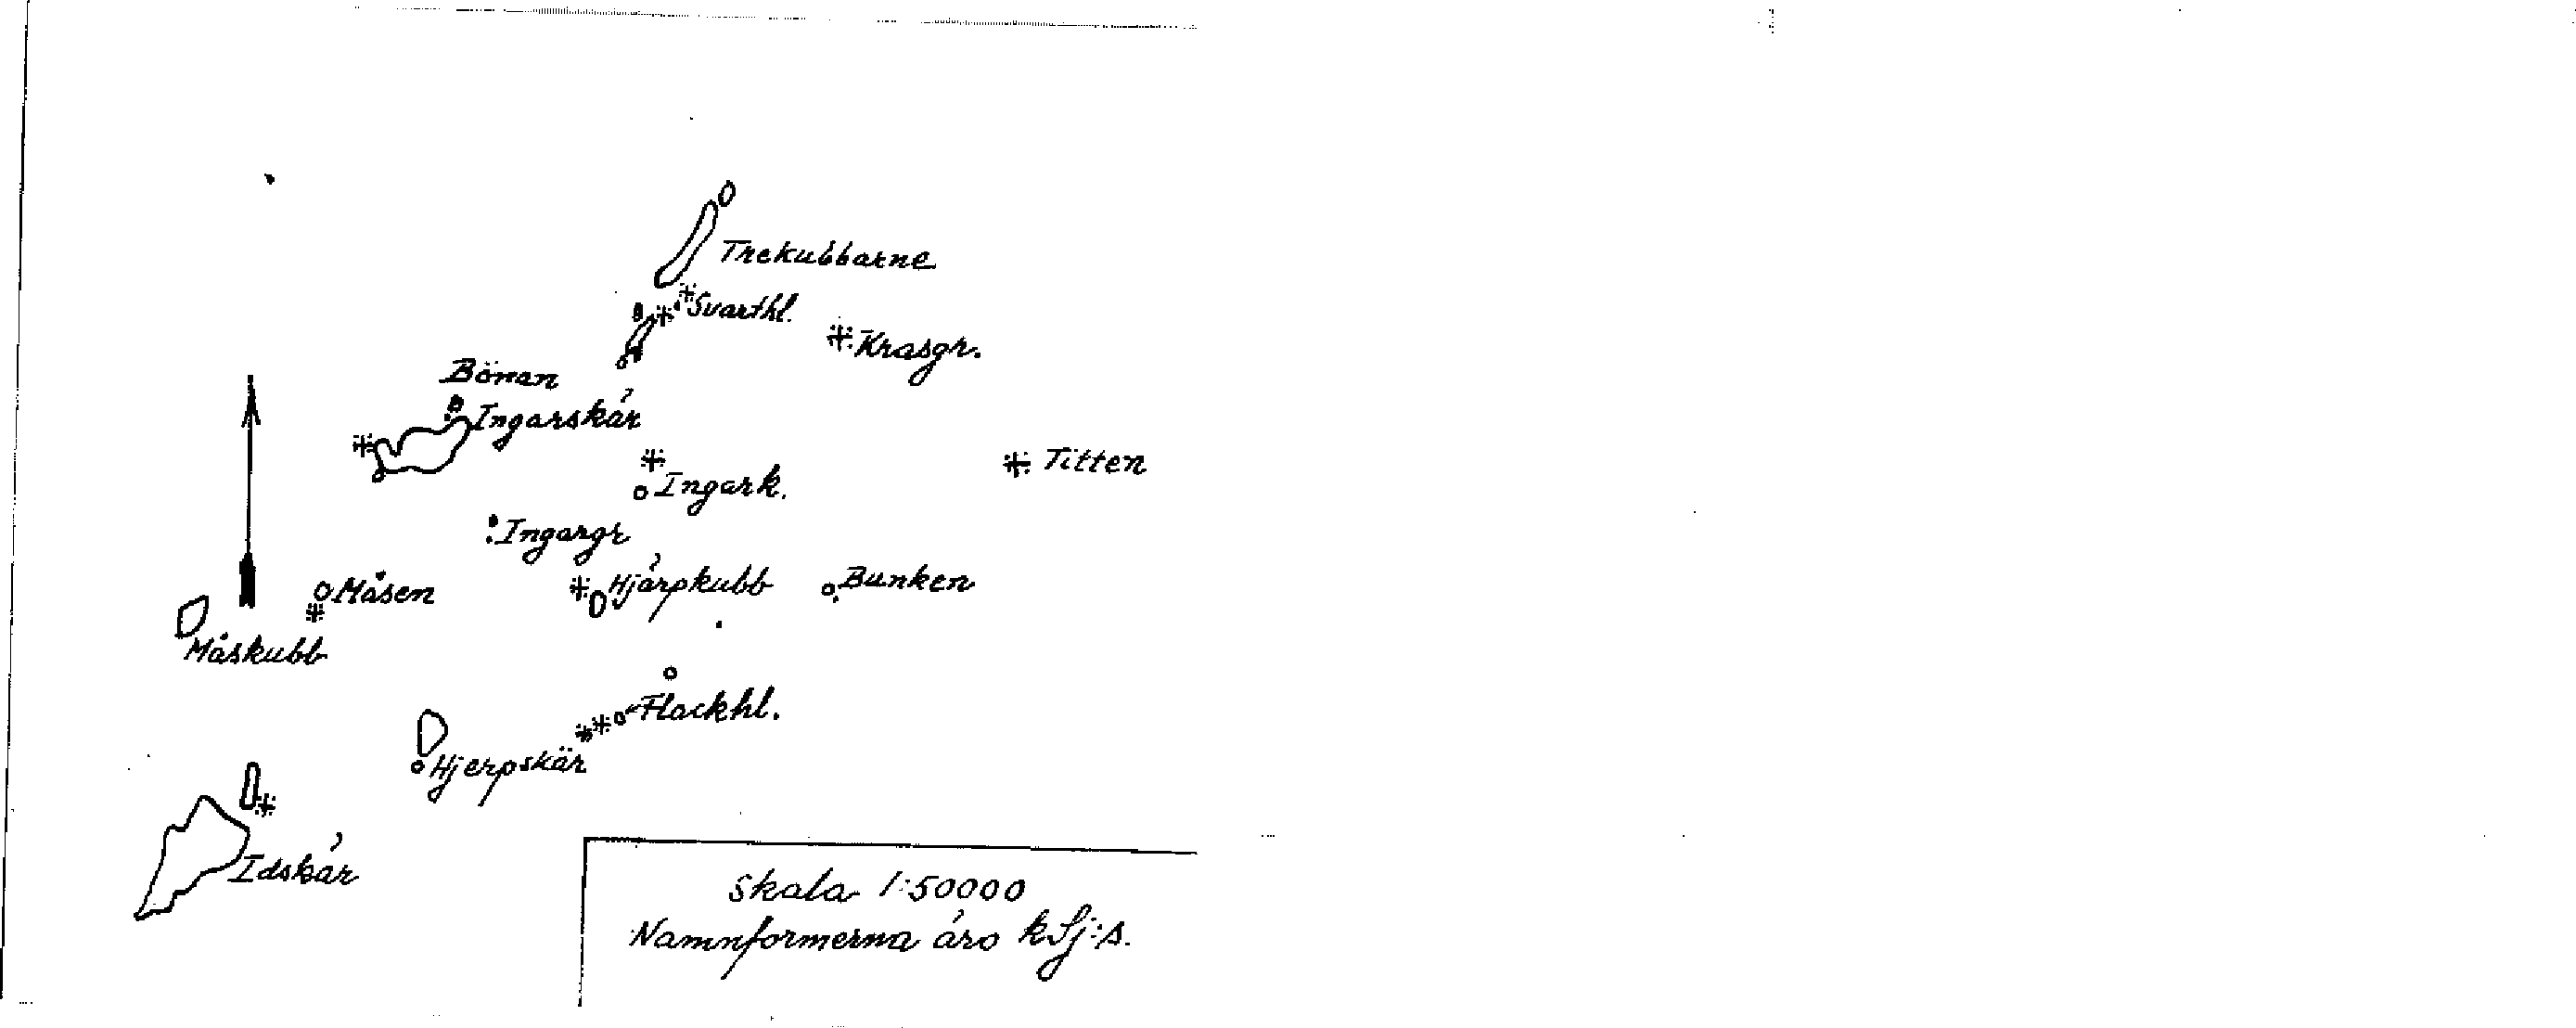 Trekubbarne
Svarthl.
Krasgr.
Bönan
Ingarskär
Titten
Ingark.
Ingargr
Hjärpkubb
Bunken
Måsen
Måskubb
Flackhl.
Hjerpskär
Idskär
Skala 1:50000
Namnformerna äro kSj:s.